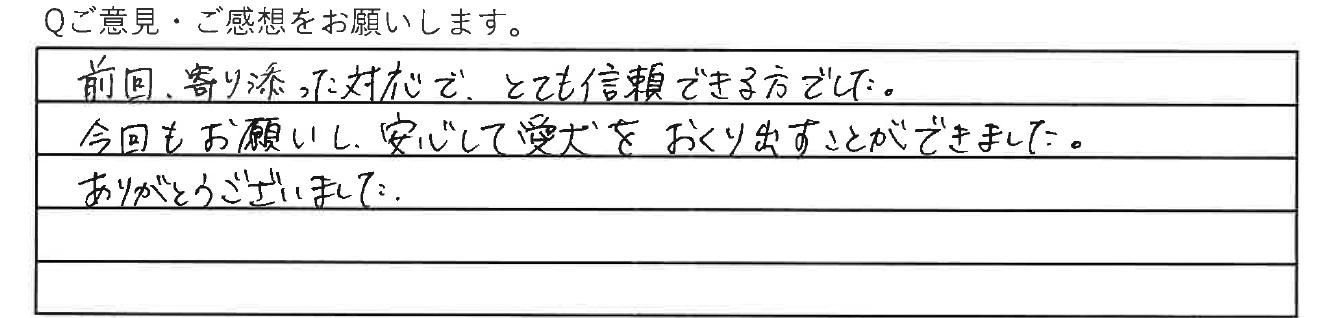 Qご意見・ご感想をお願いします。
前回、寄り添った対応で、とても信頼できる方でした。
今回もお願いし、安心して愛犬をおくり出すことができました。
ありがとうございました.